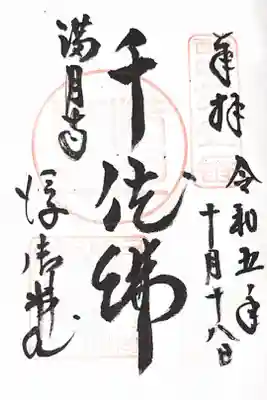 奉拝
令和五年
十月十八日
千体佛
満月寺
浮御堂